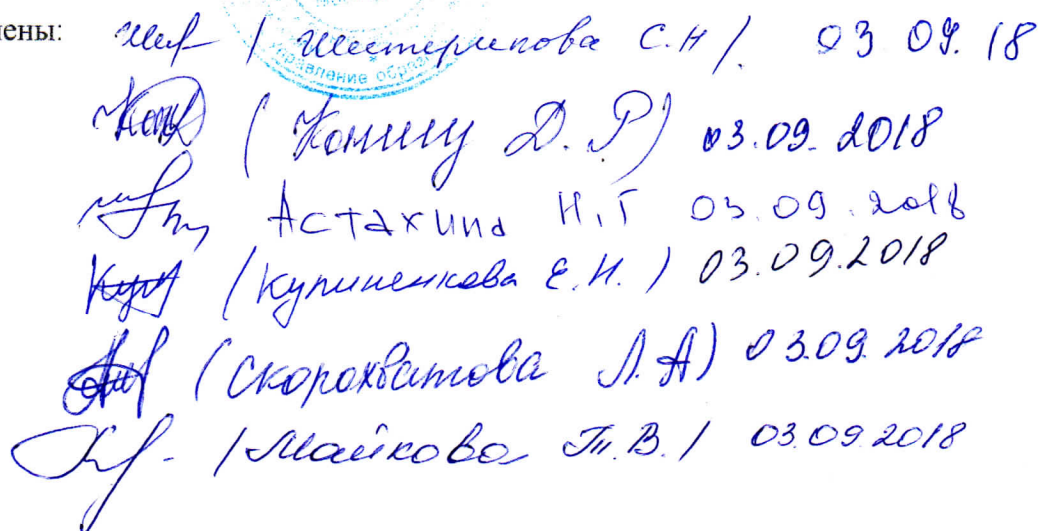 ены: / Шестерикова С.Н /. 03 09. 18
управление образ
( Д. Р) 03.09. 2018
Астахина Н.Г 03.09.2018
(Купиненкова Е.Н.) 03.09.2018
(Скорохватова Л.А) 03.09.2018
/Майкова Т.В./ 03.09.2018